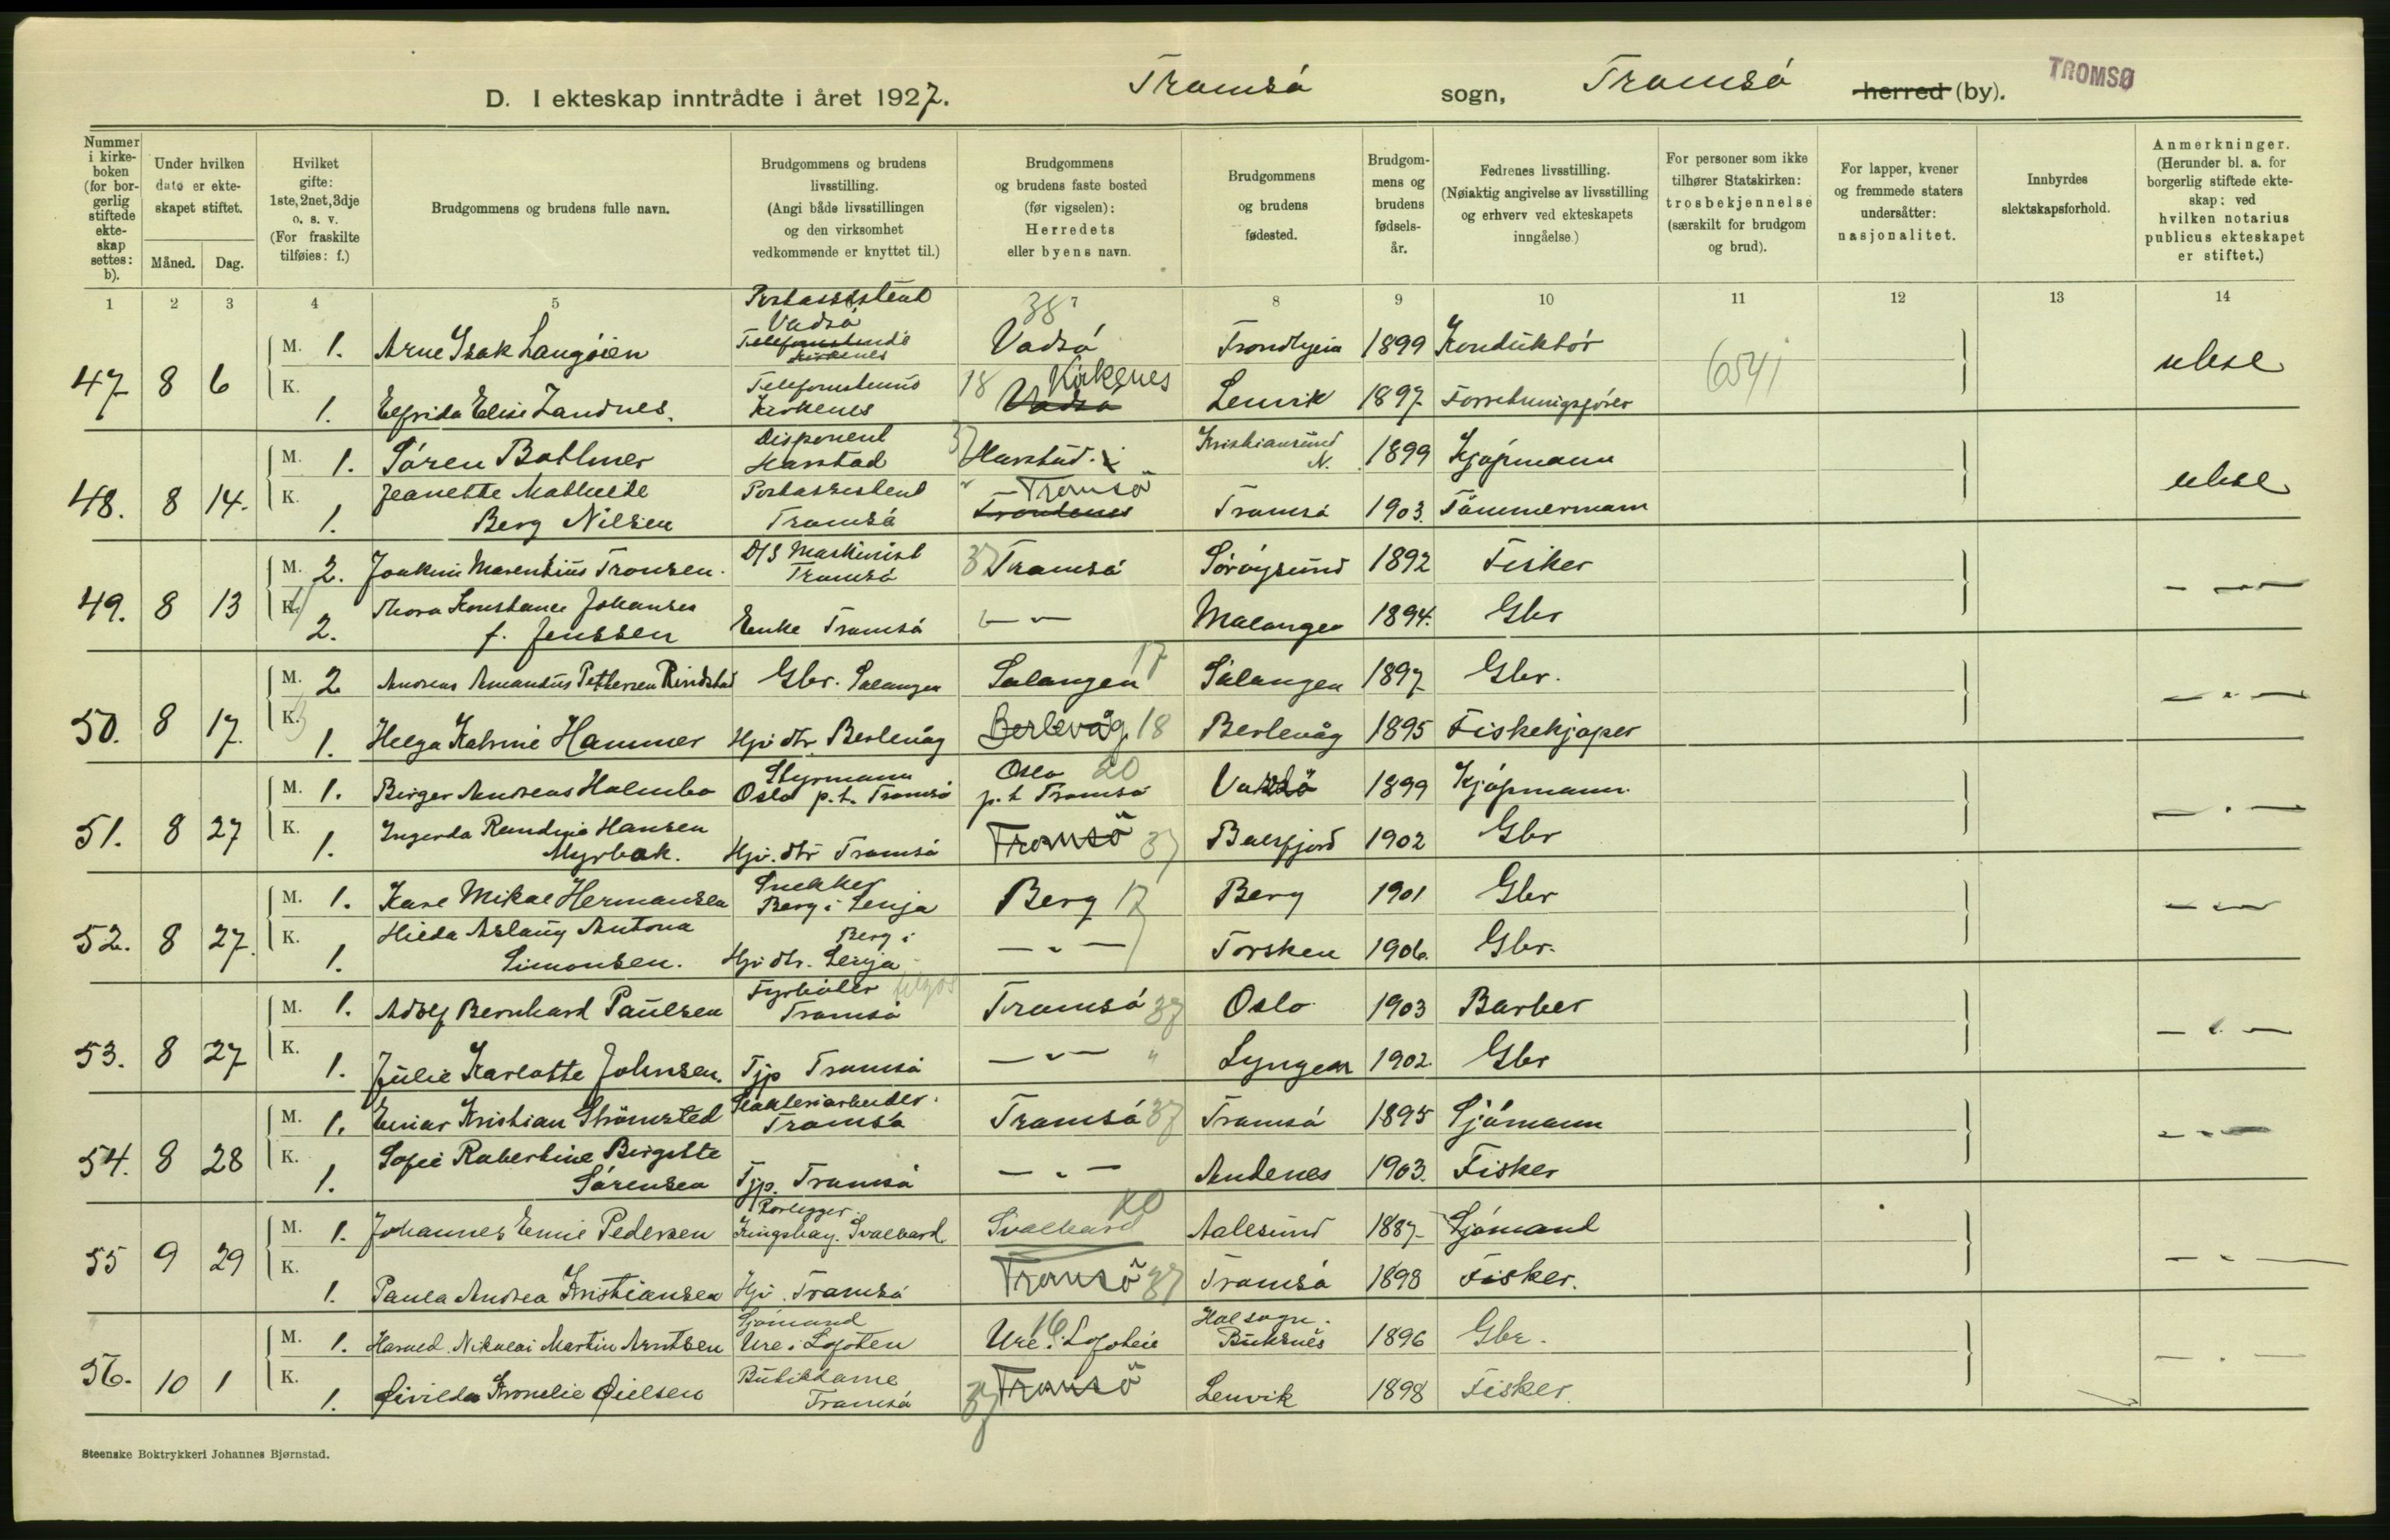 D. I ekteskap inntrådte i året 1927. Tromsö sogn, Tromsö herred (by). TROMSØ
Nummer i kirke- boken (for bor- gerlig stiftede ekte- skap settes: b).
Under hvilken dato er ekte- skapet stiftet.
Måned. Dag.
Hvilket gifte: 1ste, 2net, 3dje o. s. v. (For fraskilte tilføies: f.)
Brudgommens og brudens fulle navn.
Brudgommens og brudens livsstilling. (Angi både livsstillingen og den virksomhet vedkommende er knyttet til.)
Brudgommens og brudens faste bosted (før vigselen): Herredets eller byens navn.
Brudgommens og brudens fødested.
Brudgom- mens og brudens fødsels- år.
Fedrenes livsstilling. (Nøiaktig angivelse av livsstilling og erhverv ved ekteskapets inngåelse.)
For personer som ikke tilhører Statskirken: trosbekjennelse (særskilt for brudgom og brud).
For lapper, kvener og fremmede staters undersåtter: nasjonalitet.
Innbyrdes slektskapsforhold.
Anmerkninger. (Herunder bl. a. for borgerlig stiftede ekte- skap: ved hvilken notarius publicus ekteskapet er stiftet.)
1 2 3 4 5 7 8 9 10 11 12 13 14
47 8 6
M. 1. Arne Isak Langöien Postassistent Vadsö 38 Vadsö Trondhjem 1899 Konduktör
K. 1. Elfrida Elise Zandnes. Kirkenes 18 Kirkenes Vadsö Lenvik 1897 Forretningsförer 6541
48. 8 14.
M. 1. Sören Bothner Disponent Harstad 37 Harstad. Kristiansund N. 1899 Kjöpmann
K. 1. Jeanette Mathilde Berg Nilsen Postassistent Tromsö Tromsö Trondenes Tromsö 1903. Tömmermann
49. 8 13
M. 2. Joakim Marentius Tronsen. D/S Maskinist Tromsö 37 Tromsö Söröysund 1892 Fisker
K. 2. Thora Konstance Johansen f. Jenssen Enke Tromsö — " — Malangen 1894. Gbr — " —
50. 8 17.
M. 2 Andreas Amandus Pettersen Rindstad Gbr. Salangen Salangen 17 Salangen 1897 Gbr.
K. 1. Helga Katrine Hammer Hjv dtr. Berlevåg Berlevåg 18 Berlevåg 1895 Fiskekjöper — " —
51. 8 27
M. 1. Birger Andreas Holmbo Styrmann Oslo p.t. Tromsö Oslo p.t Tromsö 20 Vardö 1899 Kjöpmann.
K. 1. Ingerda Hansen Myrbak. Hjv. dtr Tromsö Tromsö 37 Balsfjord 1902 Gbr — " —
52. 8 27.
M. 1. Kare Mikal Hermansen Snekker Berg i Senja Berg 17 Berg 1901 Gbr
K. 1. Hilda Aslaug Antona Simonsen. Hjv dtr. Berg i Senja — " — Torsken 1906. Gbr. — " —
53. 8 27
M. 1. Adolf Bernhard Paulsen Fyrböter Tromsö Tromsö 37 Oslo 1903 Barber
K. 1. Julie Karlotte Johnsen. Tjp Tromsö — " — " Lyngen 1902. Gbr — " —
54. 8 28
M. 1. Einar Kristian Strömsted Tromsö Tromsö 37 Tromsö 1895 Sjömann
K. 1. Sofie Robertine Birgitte Sörensen Tjp. Tromsö — " — Andenes 1903. Fisker — " —
55 9 29
M. 1. Johannes Emil Pedersen Rörlegger. Kingsbay. Svalbard Svalbard 20 Aalesund 1887 Sjömand
K. 1. Paula Andrea Kristiansen Hjv. Tromsö Tromsö 37 Tromsö 1898 Fisker. — " —
56. 10 1
M. 1. Harald Nikolai Martin Arntsen Sjömand Ure i Lofoten Ure i Lofoten 16 Hol sogn. Buksnes 1896 Gbr.
K. 1. Kornelie Butikkdame Tromsö 37 Tromsö Lenvik 1898 Fisker. — " —
Steenske Boktrykkeri Johannes Bjørnstad.